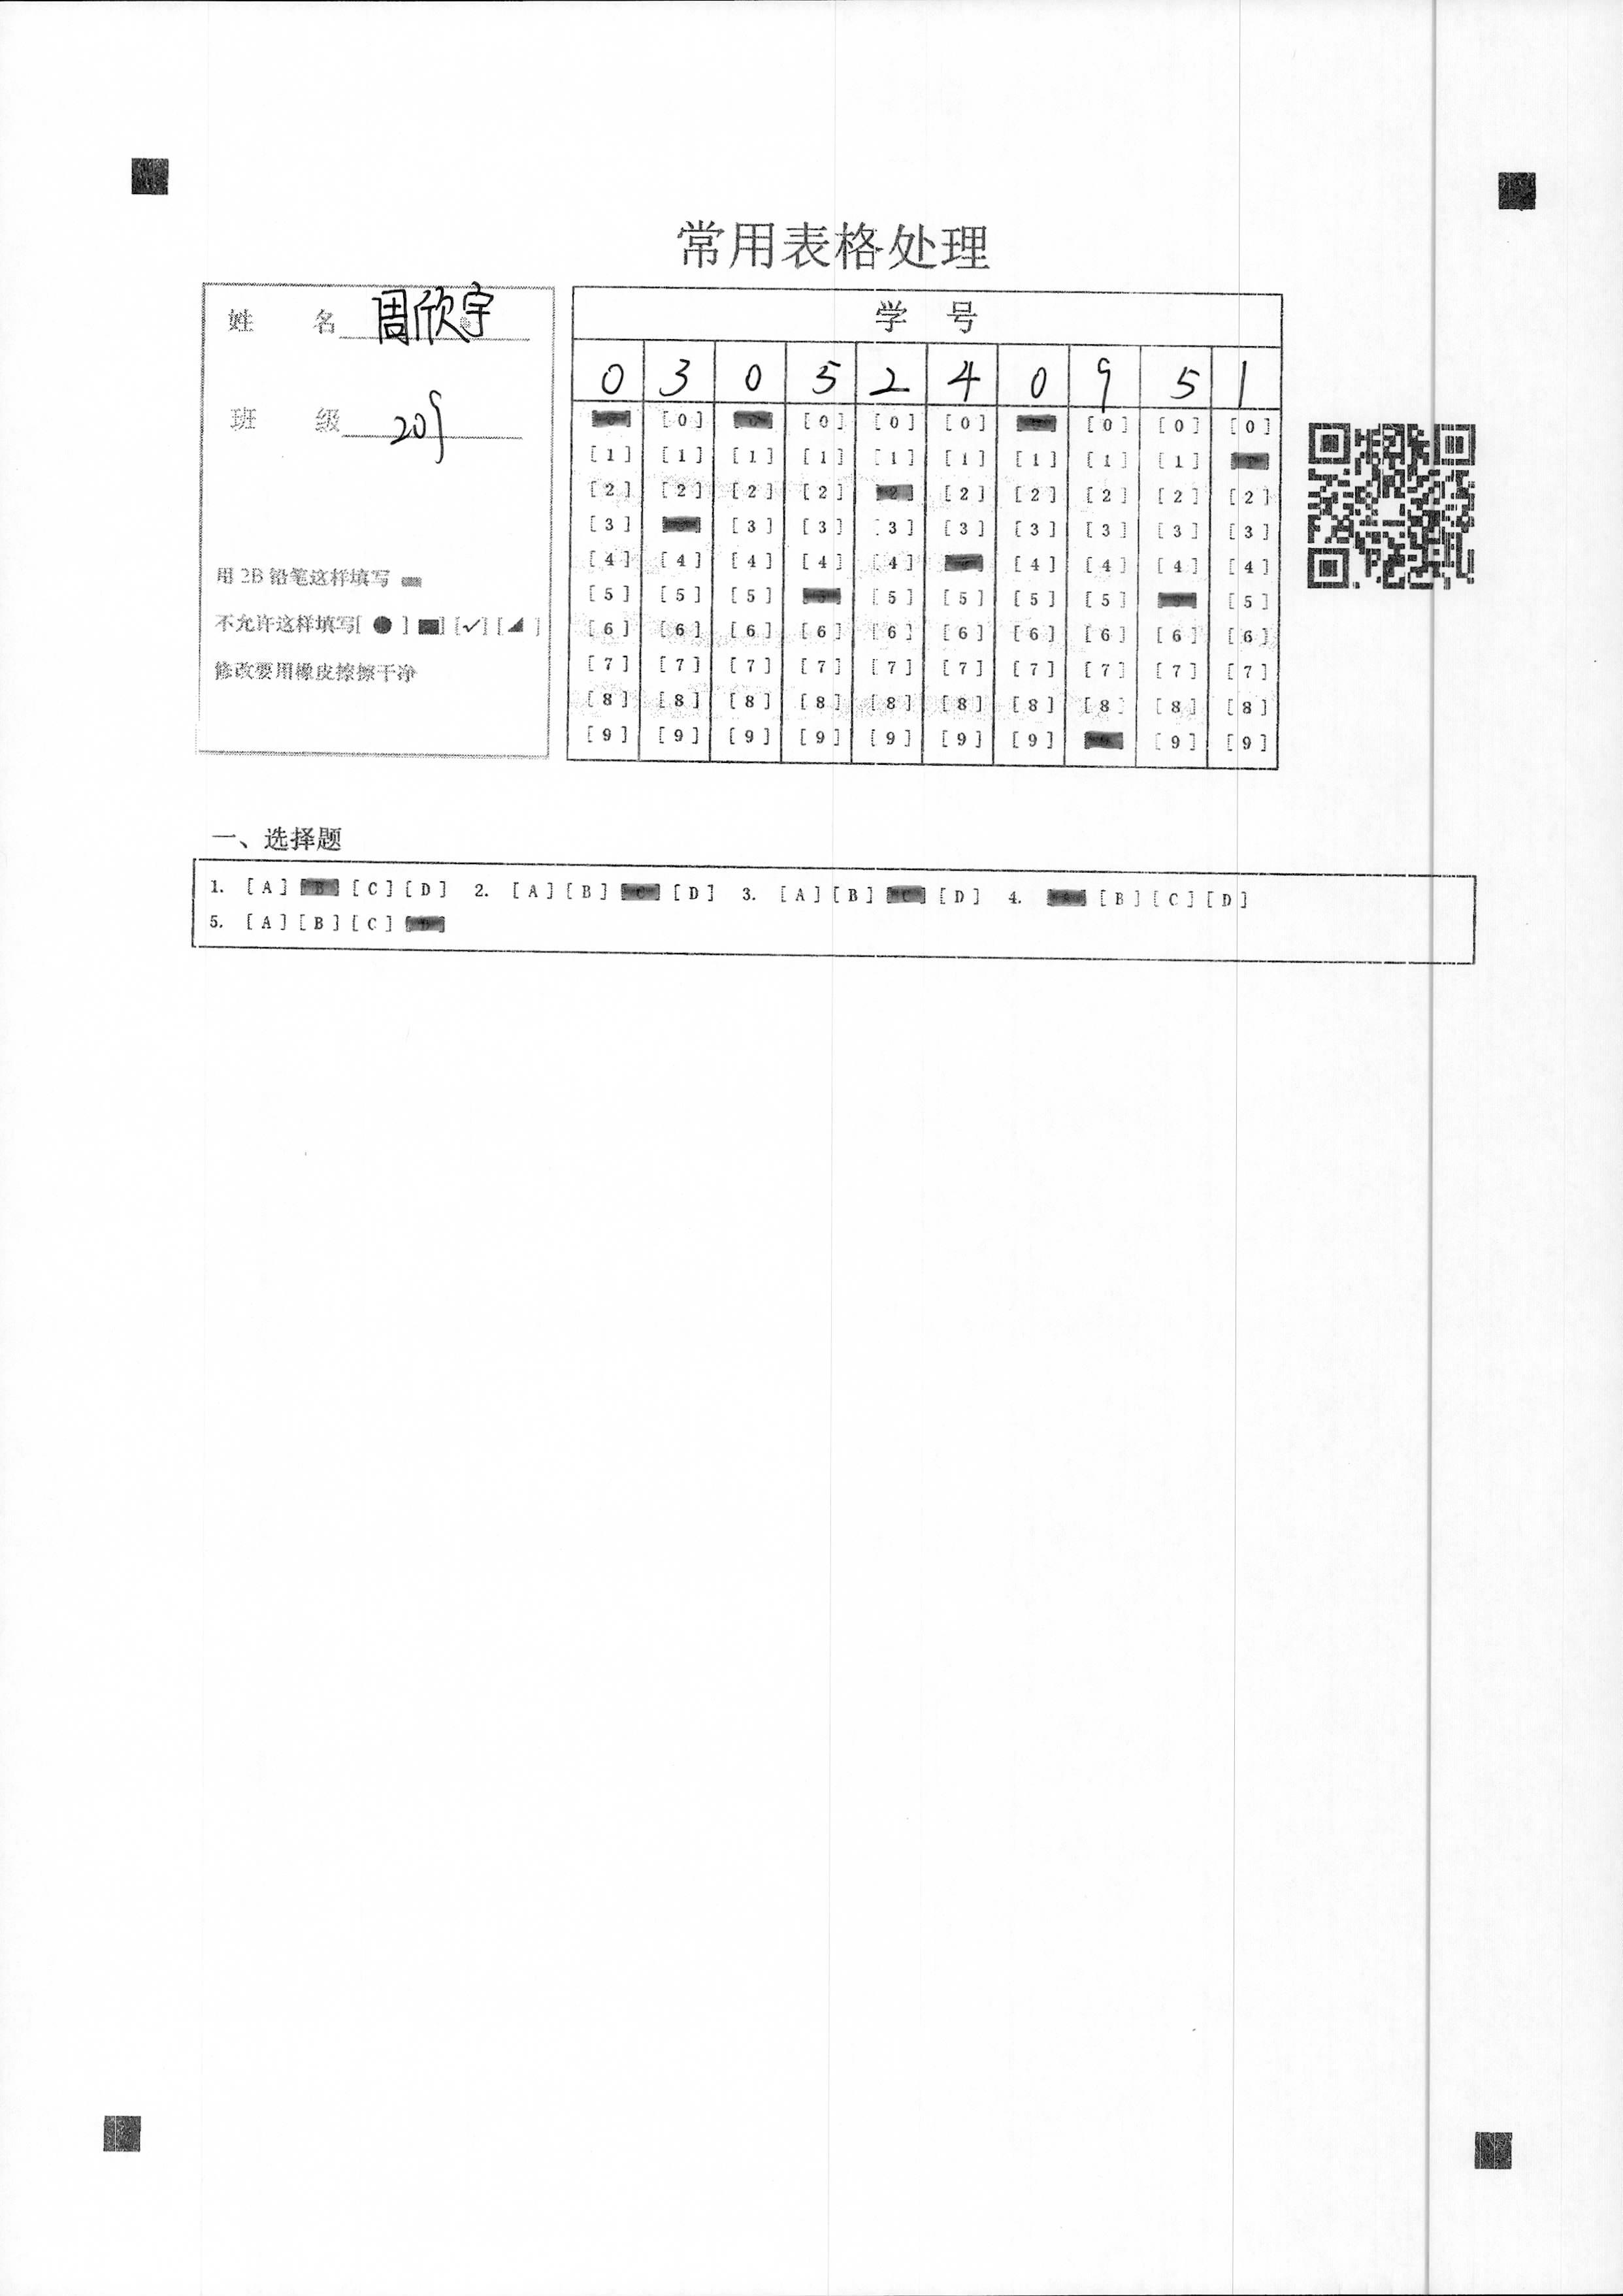 常用表格处理
姓 名 周欣宇
班 级 209
用2B铅笔这样填写
不允许这样填写[ ● ] ■] [✓] [◢ ]
修改要用橡皮擦擦干净
学 号
0 3 0 5 2 4 0 9 5 1
[0] [0] [0] [0] [0] [0] [0]
[1] [1] [1] [1] [1] [1] [1] [1] [1]
[2] [2] [2] [2] [2] [2] [2] [2] [2] [2]
[3] [3] [3] [3] [3] [3] [3] [3] [3]
[4] [4] [4] [4] [4] [4] [4] [4] [4]
[5] [5] [5] [5] [5] [5] [5] [5]
[6] [6] [6] [6] [6] [6] [6] [6] [6] [6]
[7] [7] [7] [7] [7] [7] [7] [7] [7] [7]
[8] [8] [8] [8] [8] [8] [8] [8] [8] [8]
[9] [9] [9] [9] [9] [9] [9] [9] [9]
一、选择题
1. [A] [B] [C] [D] 2. [A] [B] [C] [D] 3. [A] [B] [C] [D] 4. [A] [B] [C] [D]
5. [A] [B] [C] [D]